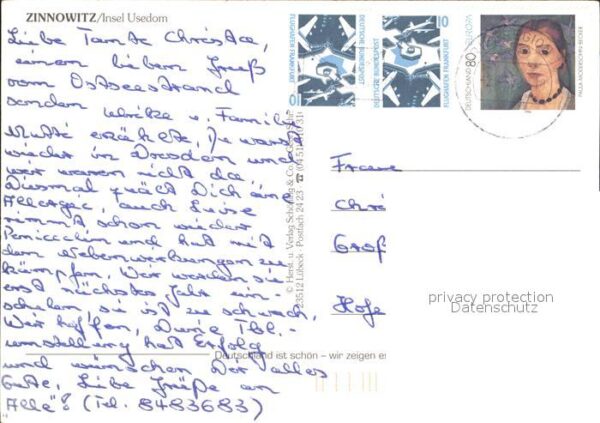 ZINNOWITZ/Insel Usedom
Liebe Tante Christa,
einen lieben Gruß
vom Ostseestrand
senden Ulrike u. Familie
Mutti erzählte, Du warst
wieder in Dresden und
wir waren nicht da.
Diesmal quält Dich eine
Allergie, auch Luise
nimmt schon wieder
Penicillin und hat mit
den Nebenwirkungen zu
kämpfen. Wir werden sie
erst nächstes Jahr ein-
schulen, sie ist zu schwach.
Wir hoffen, Deine Tbl.-
umstellung hat Erfolg
und wünschen Dir alles
Gute. Liebe Grüße an
Alle! (Tel. 8483683)
© Herst. u. Verlag Schöning & Co. + Gebr.
23512 Lübeck · Postfach 24 23
Deutschland ist schön – wir zeigen es
10 FLUGHAFEN FRANKFURT
DEUTSCHE BUNDESPOST
10 FLUGHAFEN FRANKFURT
DEUTSCHE BUNDESPOST
DEUTSCHLAND 80 EUROPA
PAULA MODERSOHN-BECKER
Frau
Chri
Graf
Hofe
privacy protection
Datenschutz